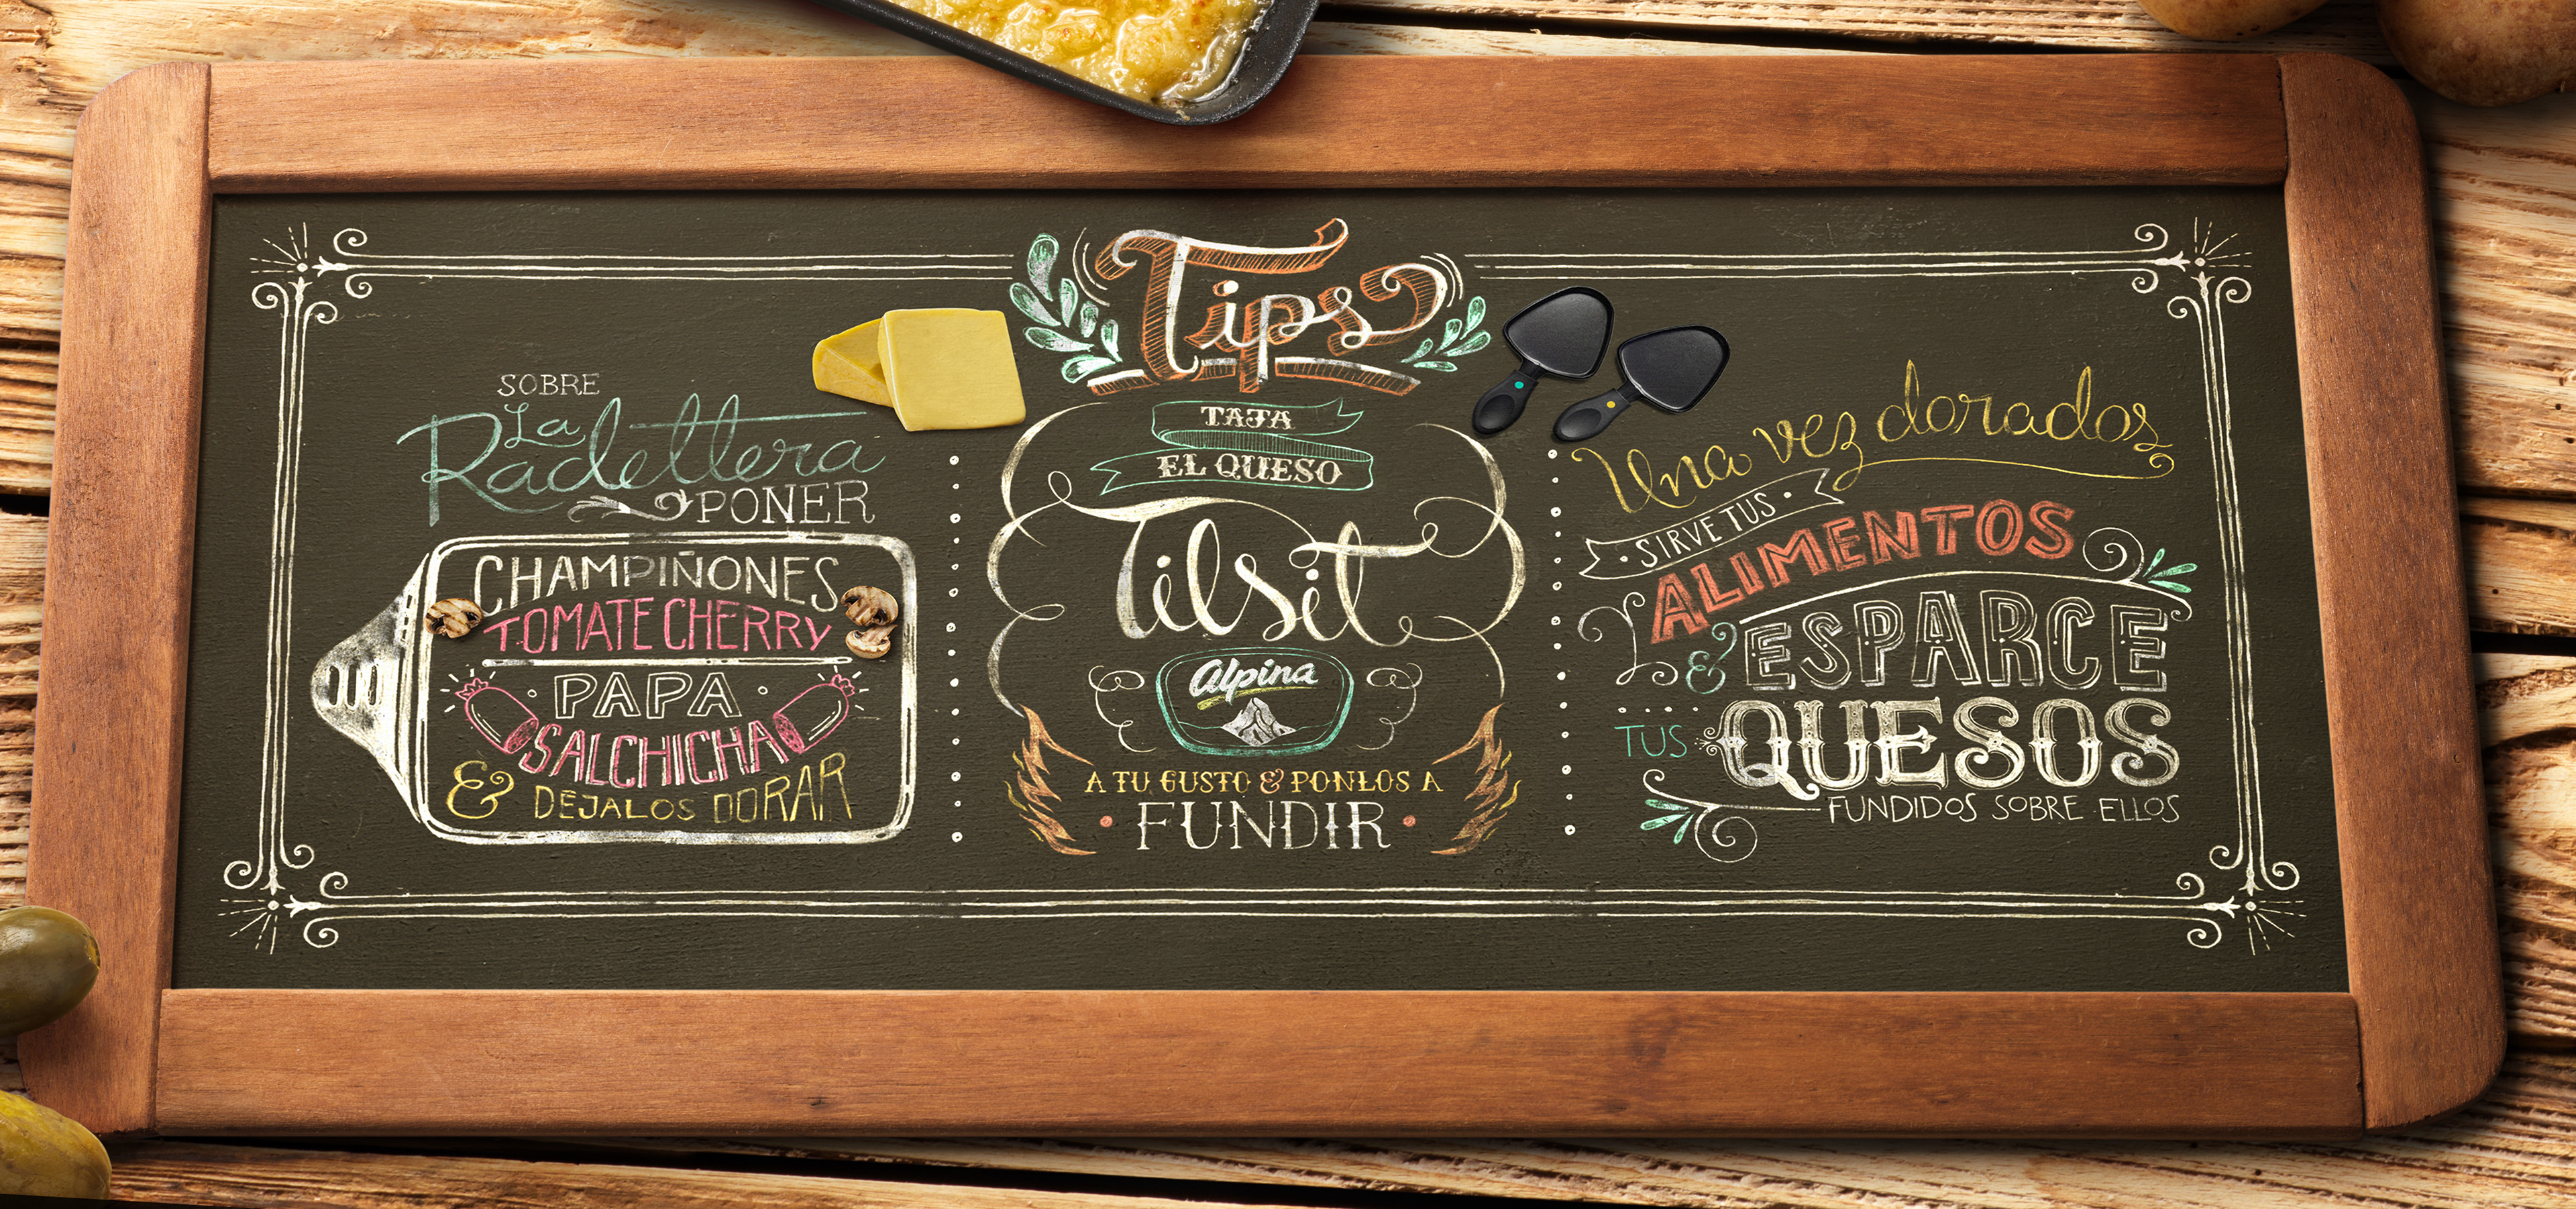 Tips
SOBRE
La
Raclettera
PONER
CHAMPIÑONES
TOMATE CHERRY
PAPA
SALCHICHA
& DÉJALOS DORAR
TAJA
EL QUESO
Tilsit
alpina
A TU GUSTO & PONLOS A
FUNDIR
Una vez dorados
SIRVE TUS
ALIMENTOS
& ESPARCE
TUS QUESOS
FUNDIDOS SOBRE ELLOS